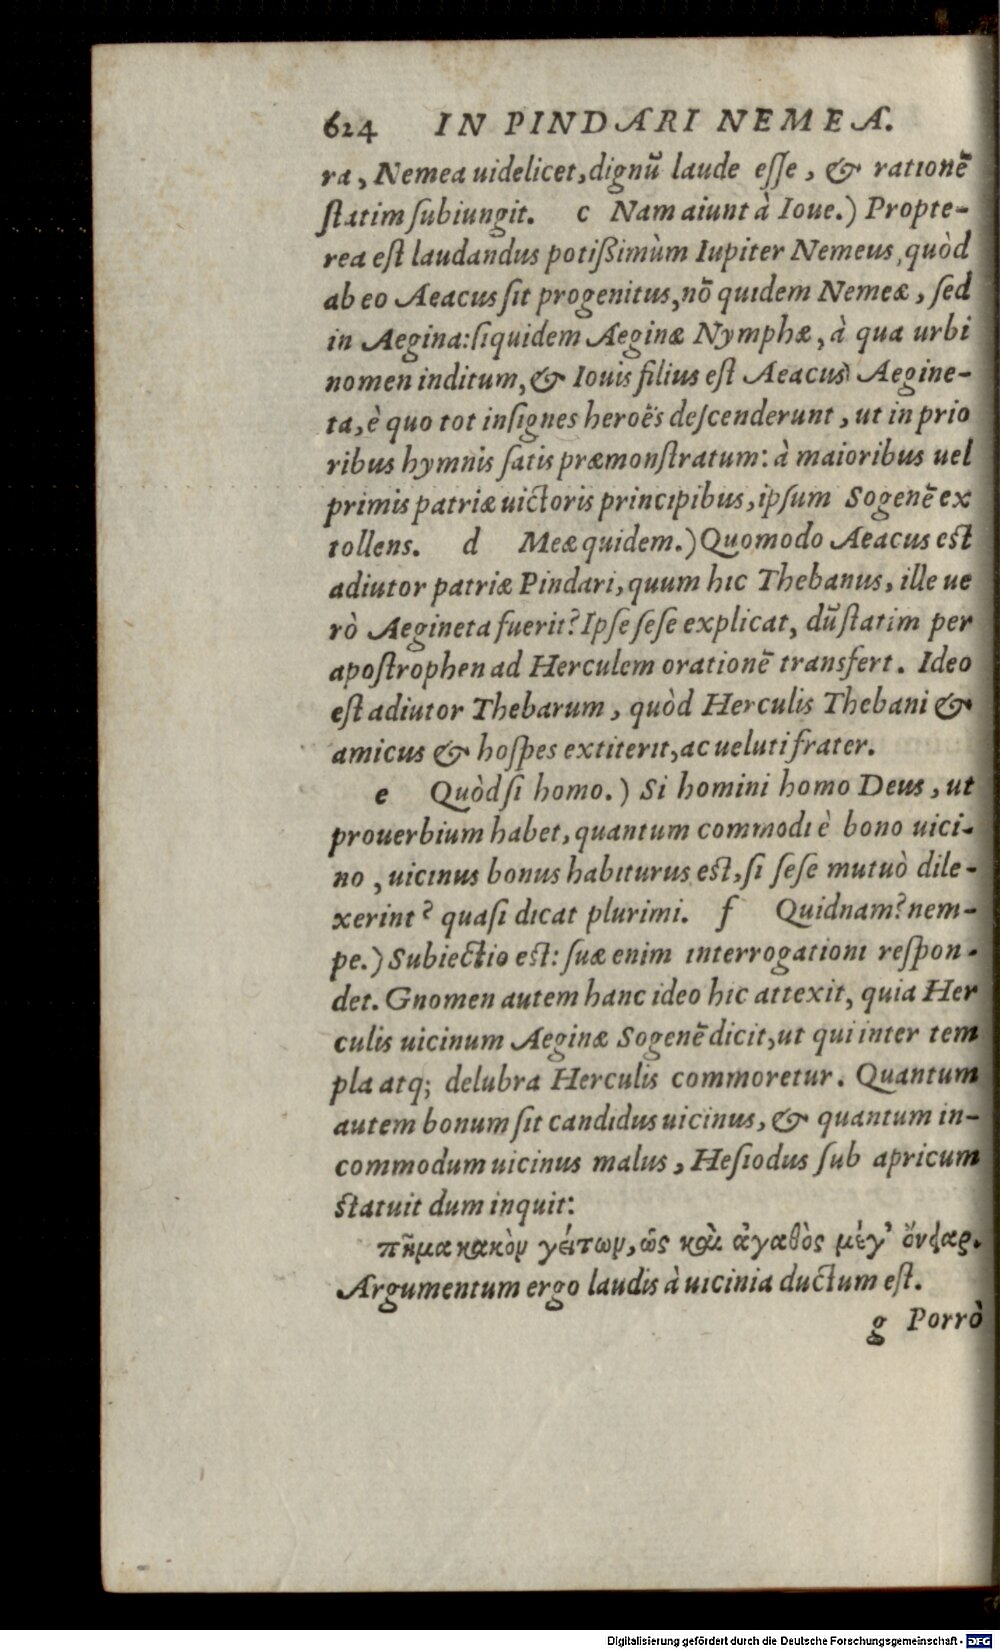 624 IN PINDARI NEMEA.
ra, Nemea uidelicet, dignū laude esse, & rationē
statim subiungit. c Nam aiunt à Ioue.) Propte-
rea est laudandus potißimùm Iupiter Nemeus, quòd
ab eo Aeacus sit progenitus, nō quidem Nemeæ, sed
in Aegina: siquidem Aeginæ Nymphæ, à qua urbi
nomen inditum, & Iouis filius est Aeacus) Aegine-
ta, è quo tot insignes heroës descenderunt, ut in prio
ribus hymnis satis præmonstratum: à maioribus uel
primis patriæ uictoris principibus, ipsum Sogenē ex
tollens. d Meæ quidem.) Quomodo Aeacus est
adiutor patriæ Pindari, quum hic Thebanus, ille ue
rò Aegineta fuerit? Ipse sese explicat, dū statim per
apostrophen ad Herculem orationē transfert. Ideo
est adiutor Thebarum, quòd Herculis Thebani &
amicus & hospes extiterit, ac ueluti frater.
e Quòd si homo.) Si homini homo Deus, ut
prouerbium habet, quantum commodi è bono uici-
no, uicinus bonus habiturus est, si sese mutuò dile-
xerint? quasi dicat plurimi. f Quidnam? nem-
pe.) Subiectio est: suæ enim interrogationi respon-
det. Gnomen autem hanc ideo hic attexit, quia Her
culis uicinum Aeginæ Sogenē dicit, ut qui inter tem
pla atq; delubra Herculis commoretur. Quantum
autem bonum sit candidus uicinus, & quantum in-
commodum uicinus malus, Hesiodus sub apricum
statuit dum inquit:
πῆμα κακὸν γείτων, ὥς καὶ ἀγαθὸς μέγ' ὄνειαρ.
Argumentum ergo laudis à uicinia ductum est.
g Porrò
Digitalisierung gefördert durch die Deutsche Forschungsgemeinschaft - DFG